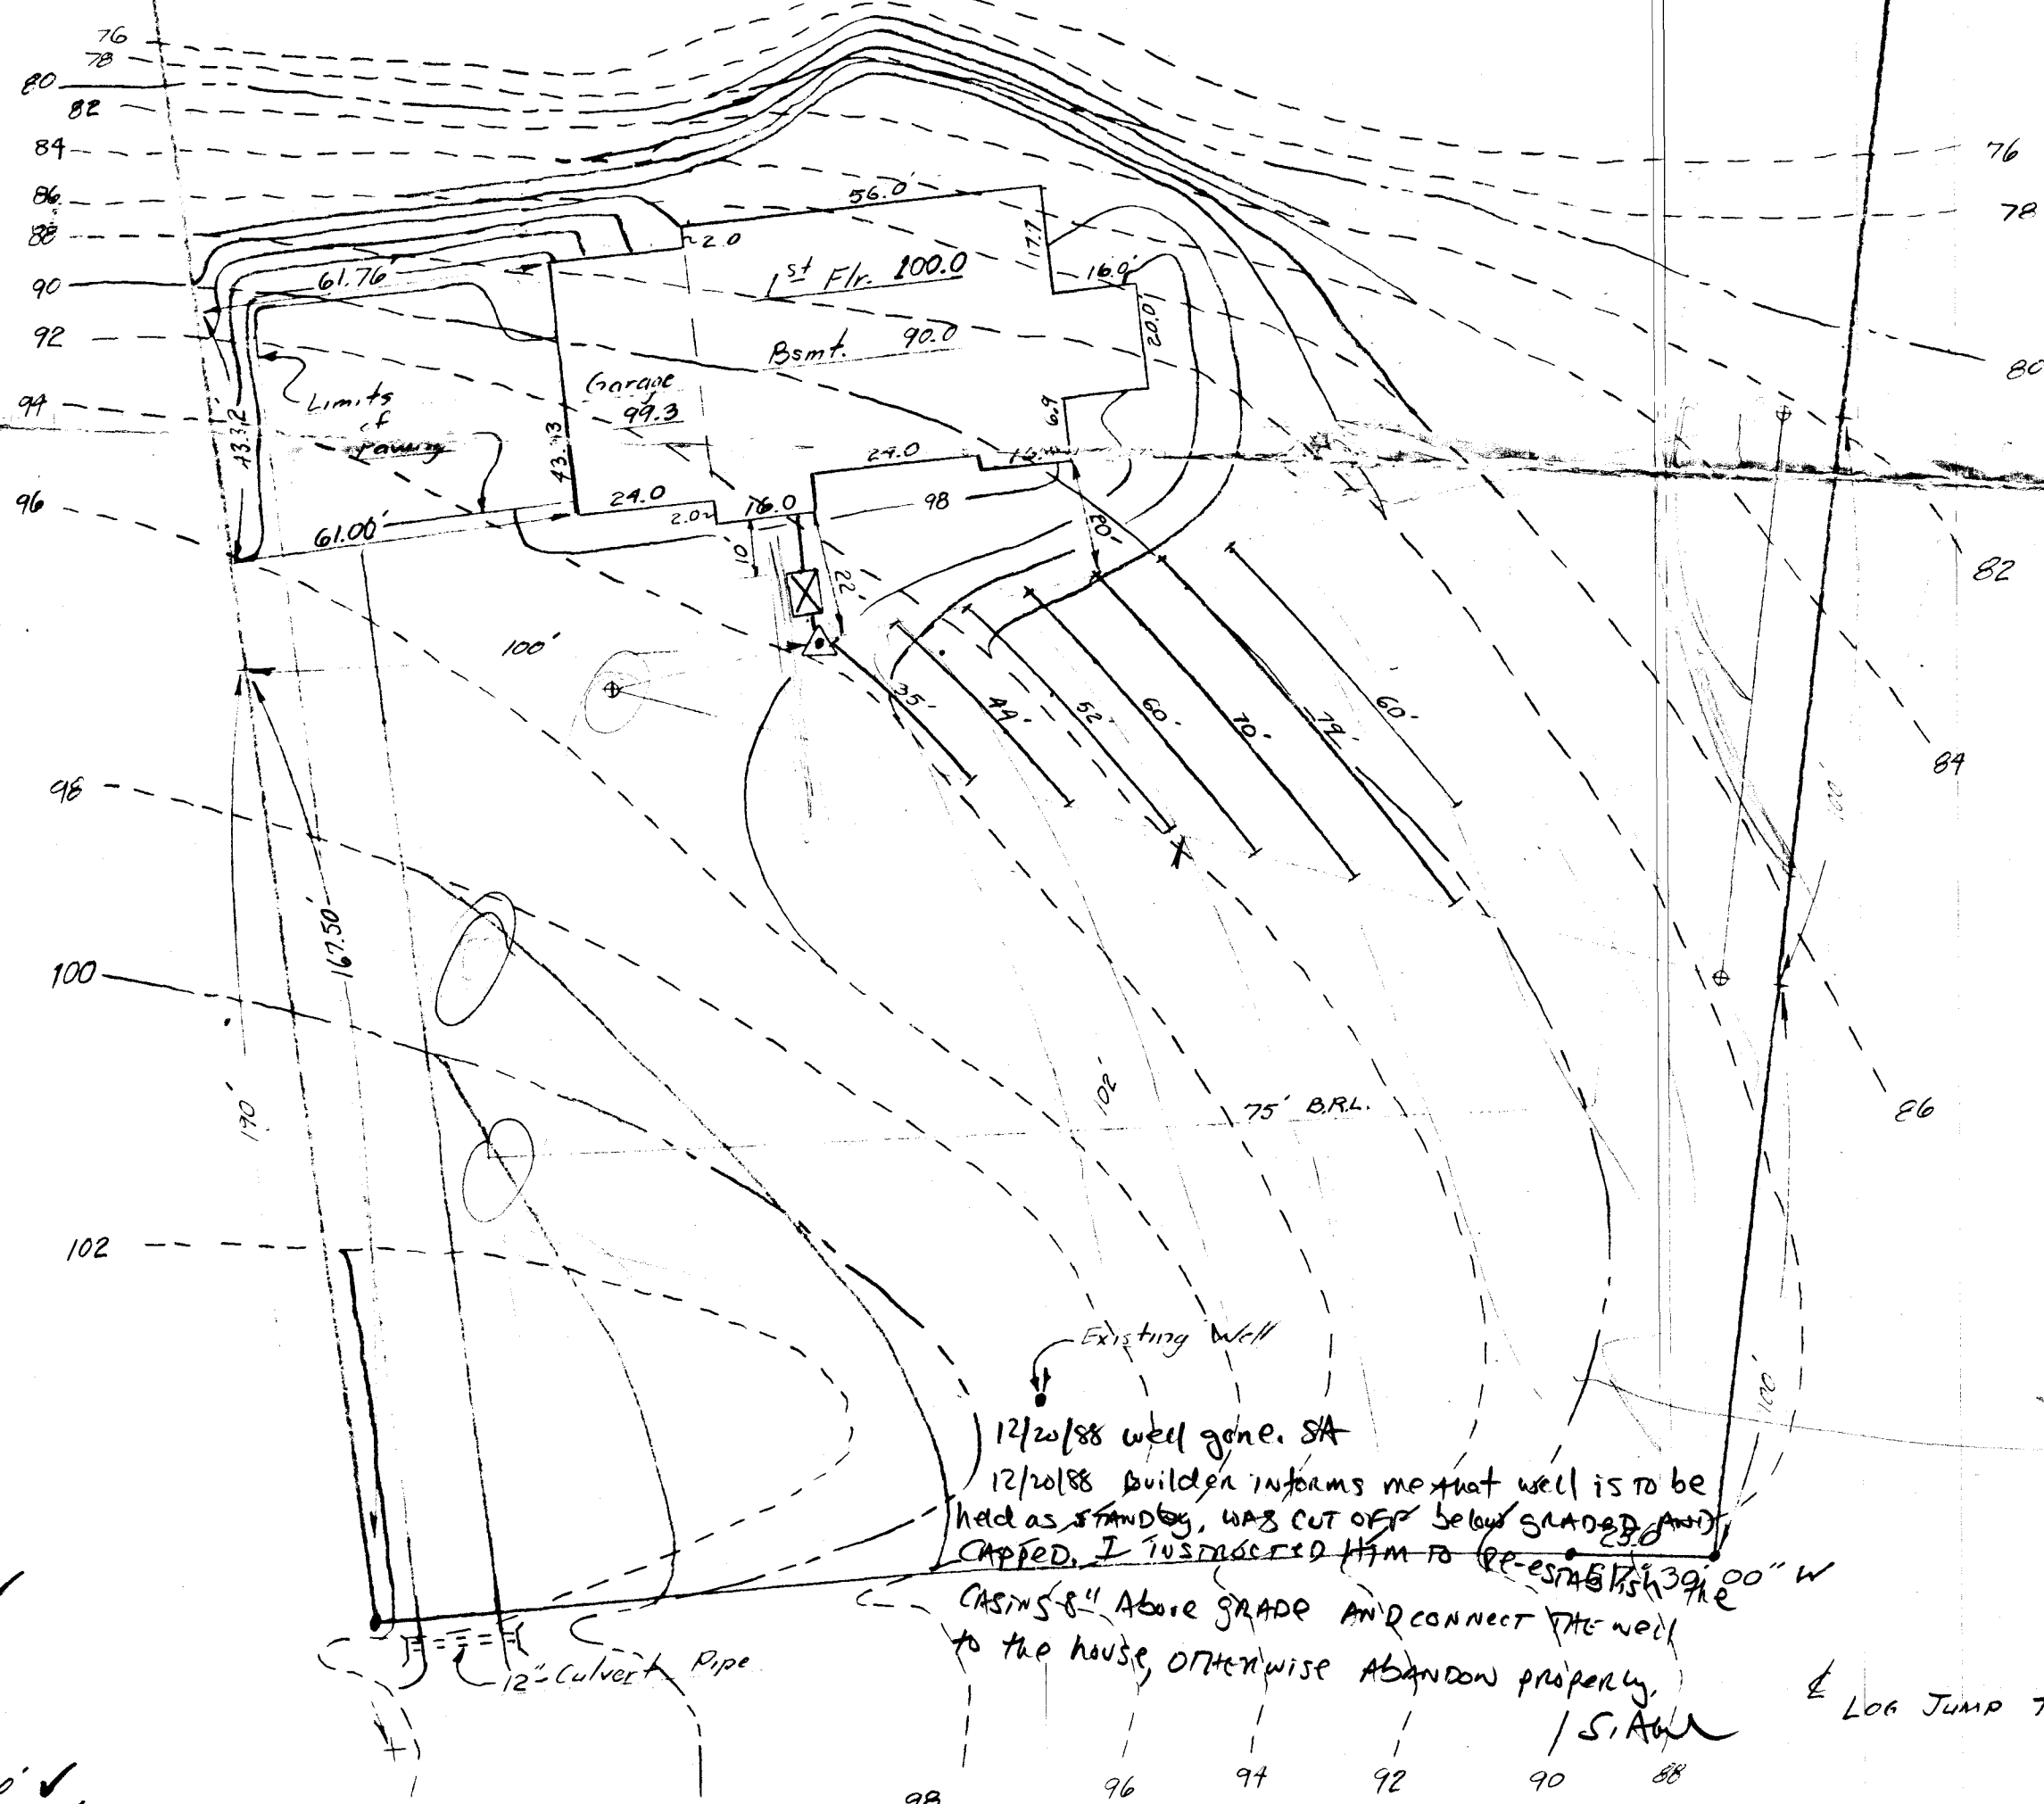 76
78
80
82
84
86
88
90
92
94
96
98
100
102
76
78
80
82
84
86
56.0'
2.0
17.7
16.0'
20.0'
6.9
1st Flr. 100.0
Bsmt. 90.0
Garage
99.3
61.76'
Limits
of
Paving
43.32'
43.43
24.0
2.0
16.0
24.0
98
61.00'
10'
22'
20'
100'
35'
44'
52'
60'
70'
79'
60'
X
100'
167.50'
190'
102'
75' B.R.L.
100'
Existing Well
12/20/88 well gone. SA
12/20/88 Builder informs me that well is to be
held as STANDBY, WAS CUT OFF below GRADED AND
CAPPED. I INSTRUCTED HIM TO Re-establish the
25.0
39' 00" W
CASING 8" Above GRADE AND CONNECT THE well
to the house, OTHERWISE ABANDON properly.
12" Culvert Pipe
LOG JUMP
98
96
94
92
90
88